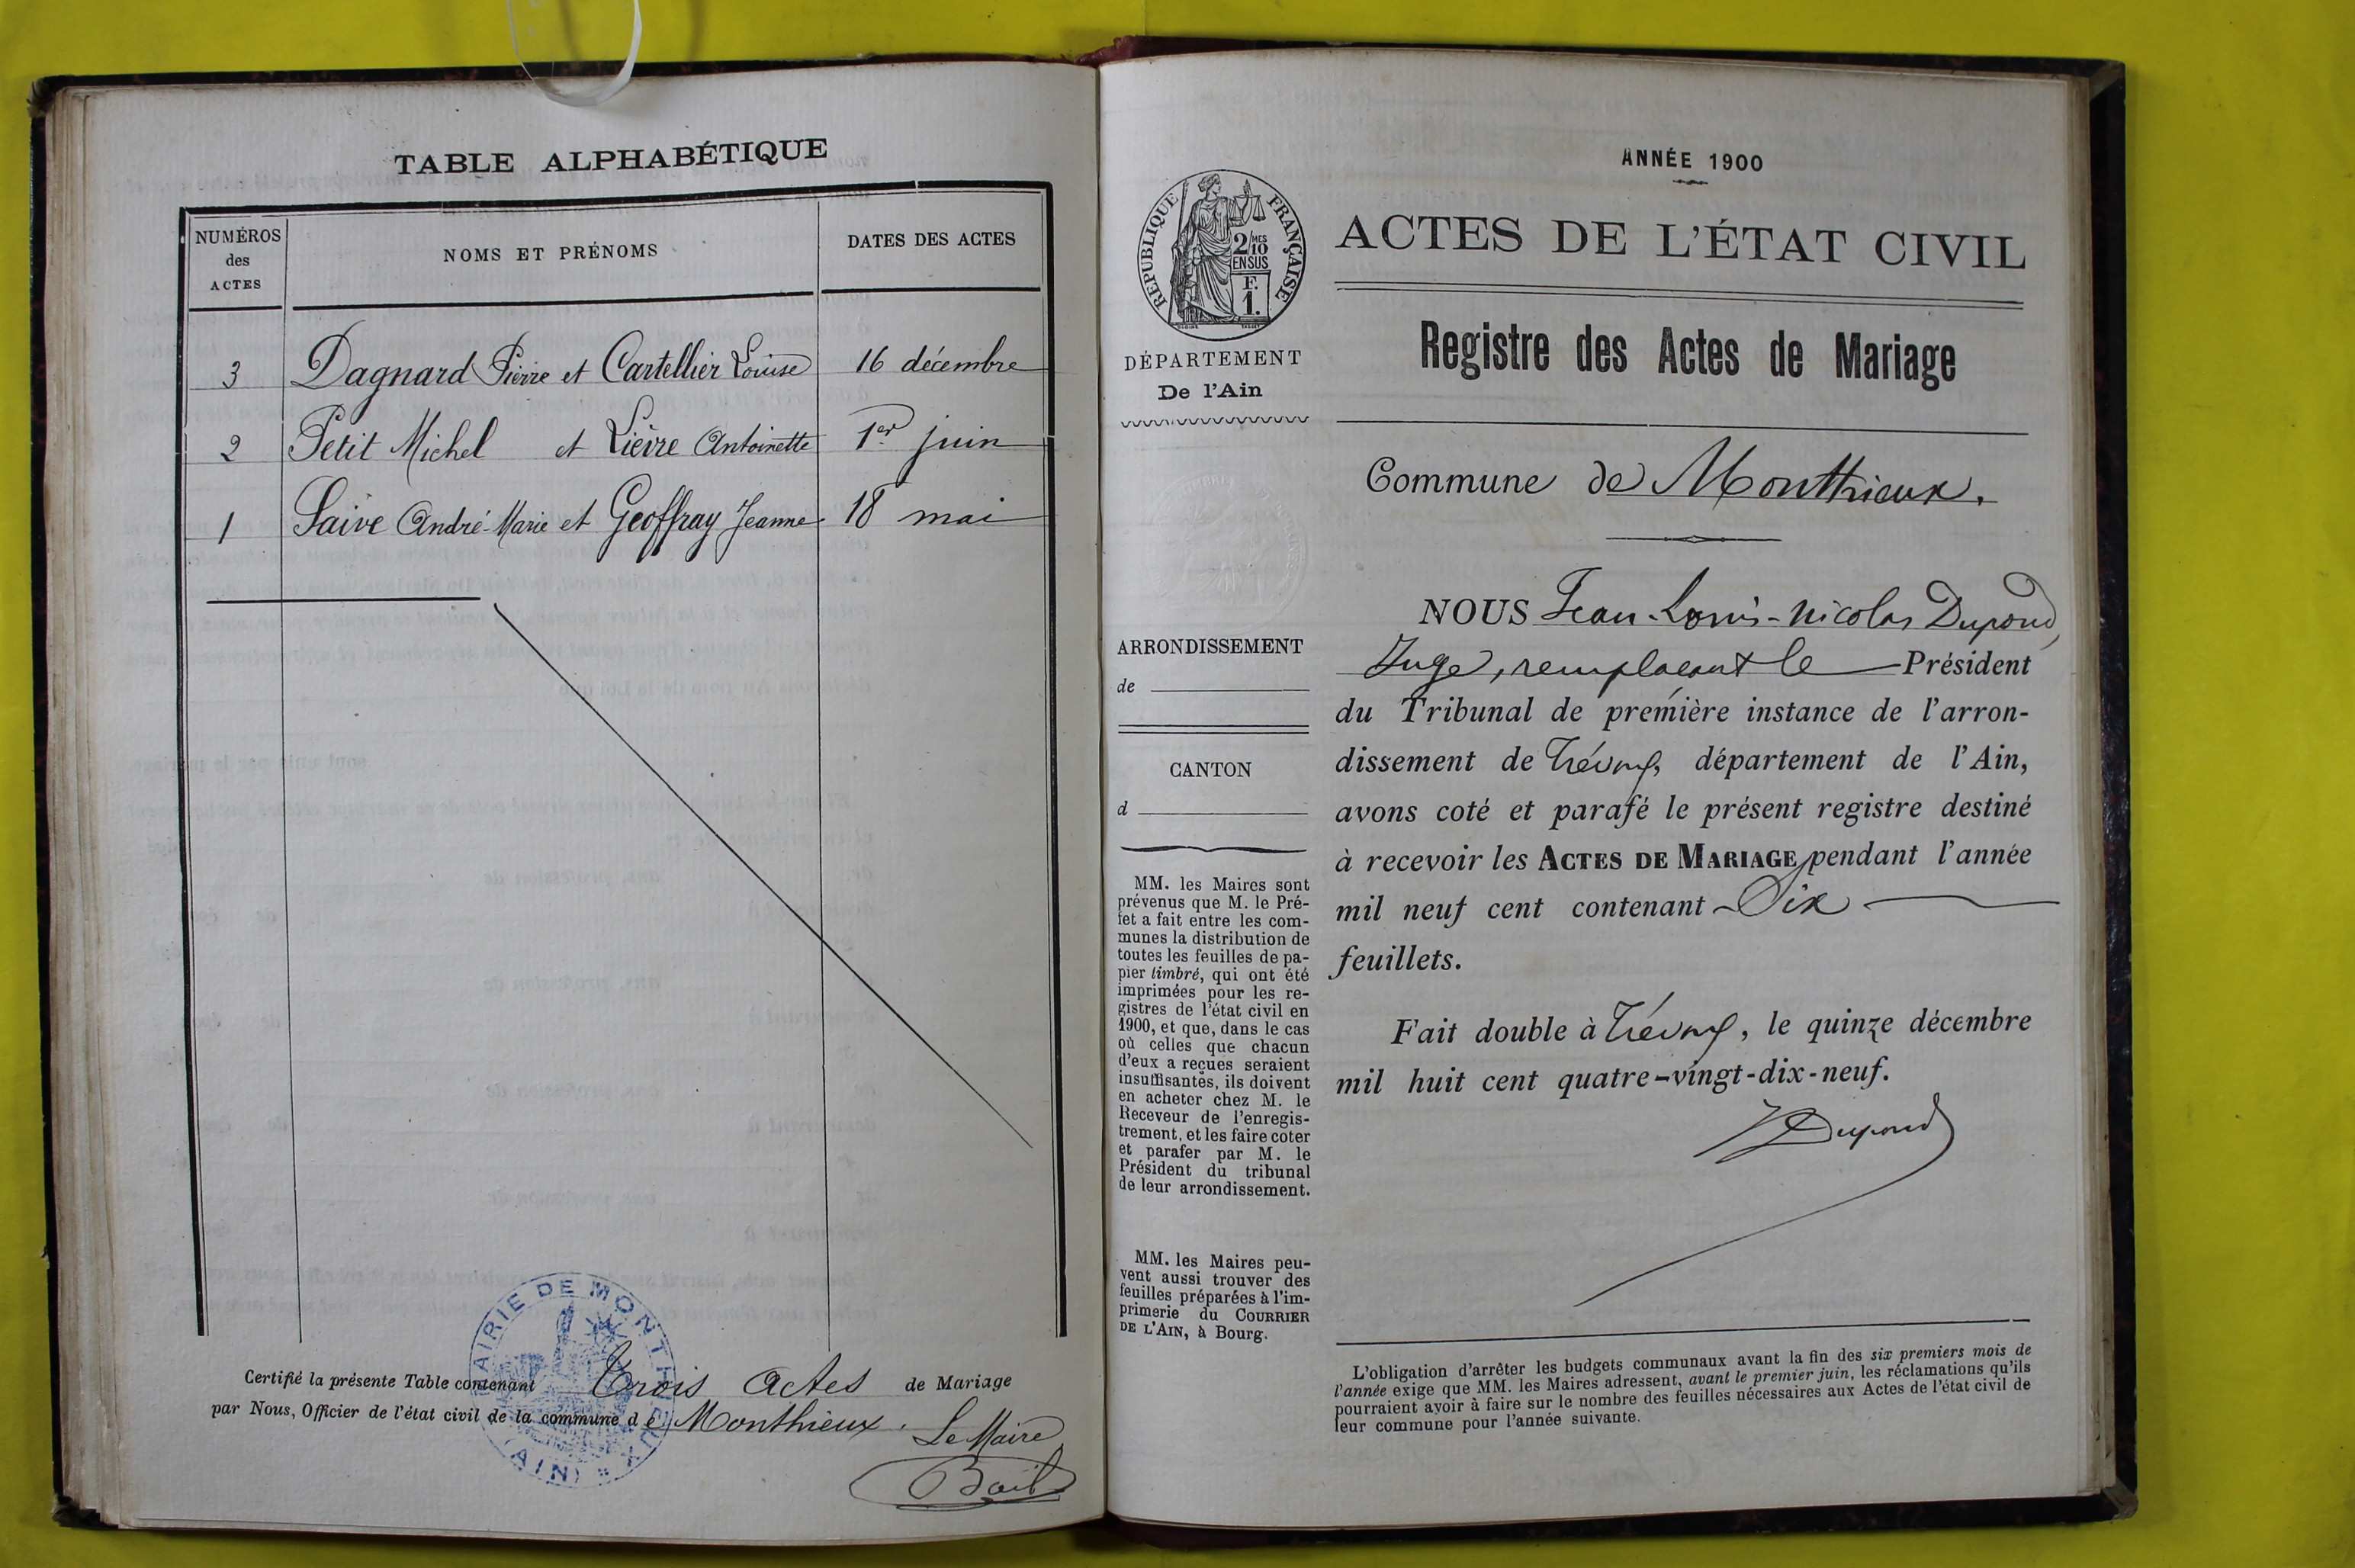 TABLE ALPHABÉTIQUE
NUMÉROS
des
ACTES
NOMS ET PRÉNOMS
DATES DES ACTES
3 Dagnard Pierre et Cartellier Louise 16 décembre
2 Petit Michel et Lièvre Antoinette 1er juin
1 Saive André-Marie et Geoffray Jeanne 18 mai
MAIRIE DE MONTHIEUX
(AIN)
Certifié la présente Table contenant Trois Actes de Mariage
par Nous, Officier de l'état civil de la commune de Monthieux.
Le Maire
ANNÉE 1900
RÉPUBLIQUE FRANÇAISE
2/MES
10
EN SUS
F.
1.
DÉPARTEMENT
De l'Ain
ARRONDISSEMENT
de
CANTON
d
MM. les Maires sont
prévenus que M. le Pré-
fet a fait entre les com-
munes la distribution de
toutes les feuilles de pa-
pier timbré, qui ont été
imprimées pour les re-
gistres de l'état civil en
1900, et que, dans le cas
où celles que chacun
d'eux a reçues seraient
insuffisantes, ils doivent
en acheter chez M. le
Receveur de l'enregis-
trement, et les faire coter
et parafer par M. le
Président du tribunal
de leur arrondissement.
MM. les Maires peu-
vent aussi trouver des
feuilles préparées à l'im-
primerie du COURRIER
DE L'AIN, à Bourg.
ACTES DE L'ÉTAT CIVIL
Registre des Actes de Mariage
Commune de Monthieux.
NOUS Jean-Louis-Nicolas Dupond,
Juge, remplaçant le Président
du Tribunal de première instance de l'arron-
dissement de Trévoux, département de l'Ain,
avons coté et parafé le présent registre destiné
à recevoir les ACTES DE MARIAGE pendant l'année
mil neuf cent contenant Six
feuillets.
Fait double à Trévoux, le quinze décembre
mil huit cent quatre-vingt-dix-neuf.
Dupond
L'obligation d'arrêter les budgets communaux avant la fin des six premiers mois de
l'année exige que MM. les Maires adressent, avant le premier juin, les réclamations qu'ils
pourraient avoir à faire sur le nombre des feuilles nécessaires aux Actes de l'état civil de
leur commune pour l'année suivante.